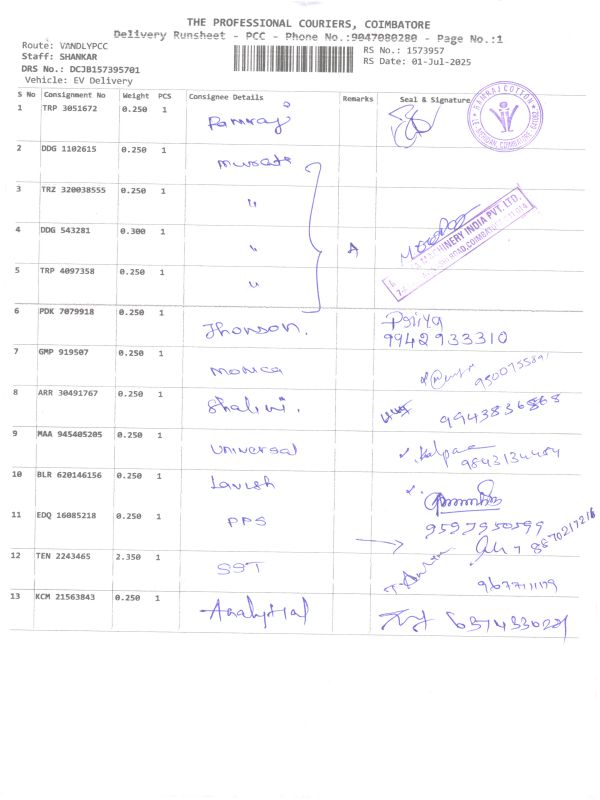 THE PROFESSIONAL COURIERS, COIMBATORE
Delivery Runsheet - PCC - Phone No.:9047080280 - Page No.:1
Route: VANDLYPCC
RS No.: 1573957
Staff: SHANKAR
RS Date: 01-Jul-2025
DRS No.: DCJB157395701
Vehicle: EV Delivery
S No Consignment No Weight PCS Consignee Details Remarks Seal & Signature
RAMRAJ COTTON
1 TRP 3051672 0.250 1 Ramraj
2 DDG 1102615 0.250 1
3 TRZ 320038555 0.250 1 "
4 DDG 543281 0.300 1 " A
MACHINERY INDIA PVT. LTD.
5 TRP 4097358 0.250 1 "
6 PDK 7079918 0.250 1 Jhonson. Priya
9942933310
7 GMP 919507 0.250 1 Monica
8 ARR 30491767 0.250 1 Shalini. 9943836868
9 MAA 945405205 0.250 1 Universal Kalpana 9843134484
10 BLR 620146156 0.250 1 Lavish
11 EDQ 16085218 0.250 1 PPS 9597950599
8870217216
12 TEN 2243465 2.350 1 SST 9677711179
13 KCM 21563843 0.250 1 Analytial 6374330221